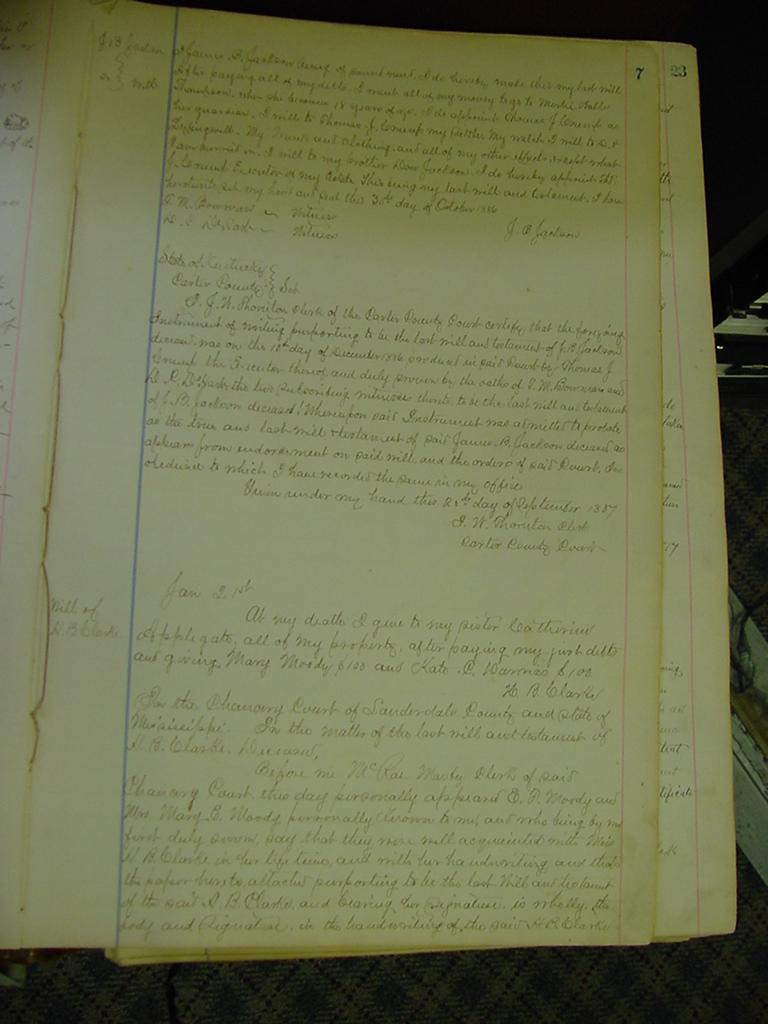 7
23
J. B. Jackson
Will
I James. B. Jackson being of sound mind, I do hereby make this my last will
After paying all of my debts, I want all of my money to go to Myrtle Belle
Thompson. when she becomes 18 years of age. I do appoint Thomas J Crump as
her guardian. I will to Thomas J. Crump my my watch I will to
My Trunk and Clothing, and all of my other effects, except what
I am buried in. I will to my brother Dow Jackson. I do hereby appoint Th
J. Executor of my Estate This being my last will and testament. I have
hereunto set my hand and seal this 30th day of October 1886
J. B Jackson
T. M. Bowman ~ Witness
~ Witness
State of Kentucky
Carter County Sct
I. J. W. Thornton Clerk of the Carter County Court certify, that the foregoing
Instrument of writing purporting to be the last will and testament of J. B. Jackson
deceased was on the day of December 1886 produced in said Court by Thomas J
the Executor thereof and duly proven by the oaths of T. M. Bowman and
the two subscribing witnesses thereto, to be the last will and testament
of J. B. Jackson deceased! Whereupon said Instrument was admitted to probate
as the true and last will & testament of said James. B. Jackson deceased as
appears from endorsement on said will, and the orders of said Court, In
obedience to which I have recorded the same in my office
Given under my hand this 28th day of September 1887
J. W. Thornton Clerk
Carter County Court
Will of
H. B. Clarke
Jan 21st
At my death I give to my sister Catherine
Applegate, all of my property, after paying my just debts
and giving Mary Moody $100 and Kate. C. $100
H. B. Clarke
In the Chancery Court of Lauderdale County and State of
Mississippi. In the matter of the last will and testament of
H. B. Clarke. Deceased,
Before me McRae Mosby Clerk of said
Chancery Court this day personally appeared E. F. Moody and
Mrs. Mary E. Moody personally known to me, and who being by me
first duly sworn, say that they were well acquainted with Miss
H. B. Clarke in her life time, and with her handwriting and that
the paper hereto attached purporting to be the last Will and testament
of the said H. B. Clarke, and bearing her signature, is wholly, the
body and Signature, in the handwriting of the said H. B. Clarke